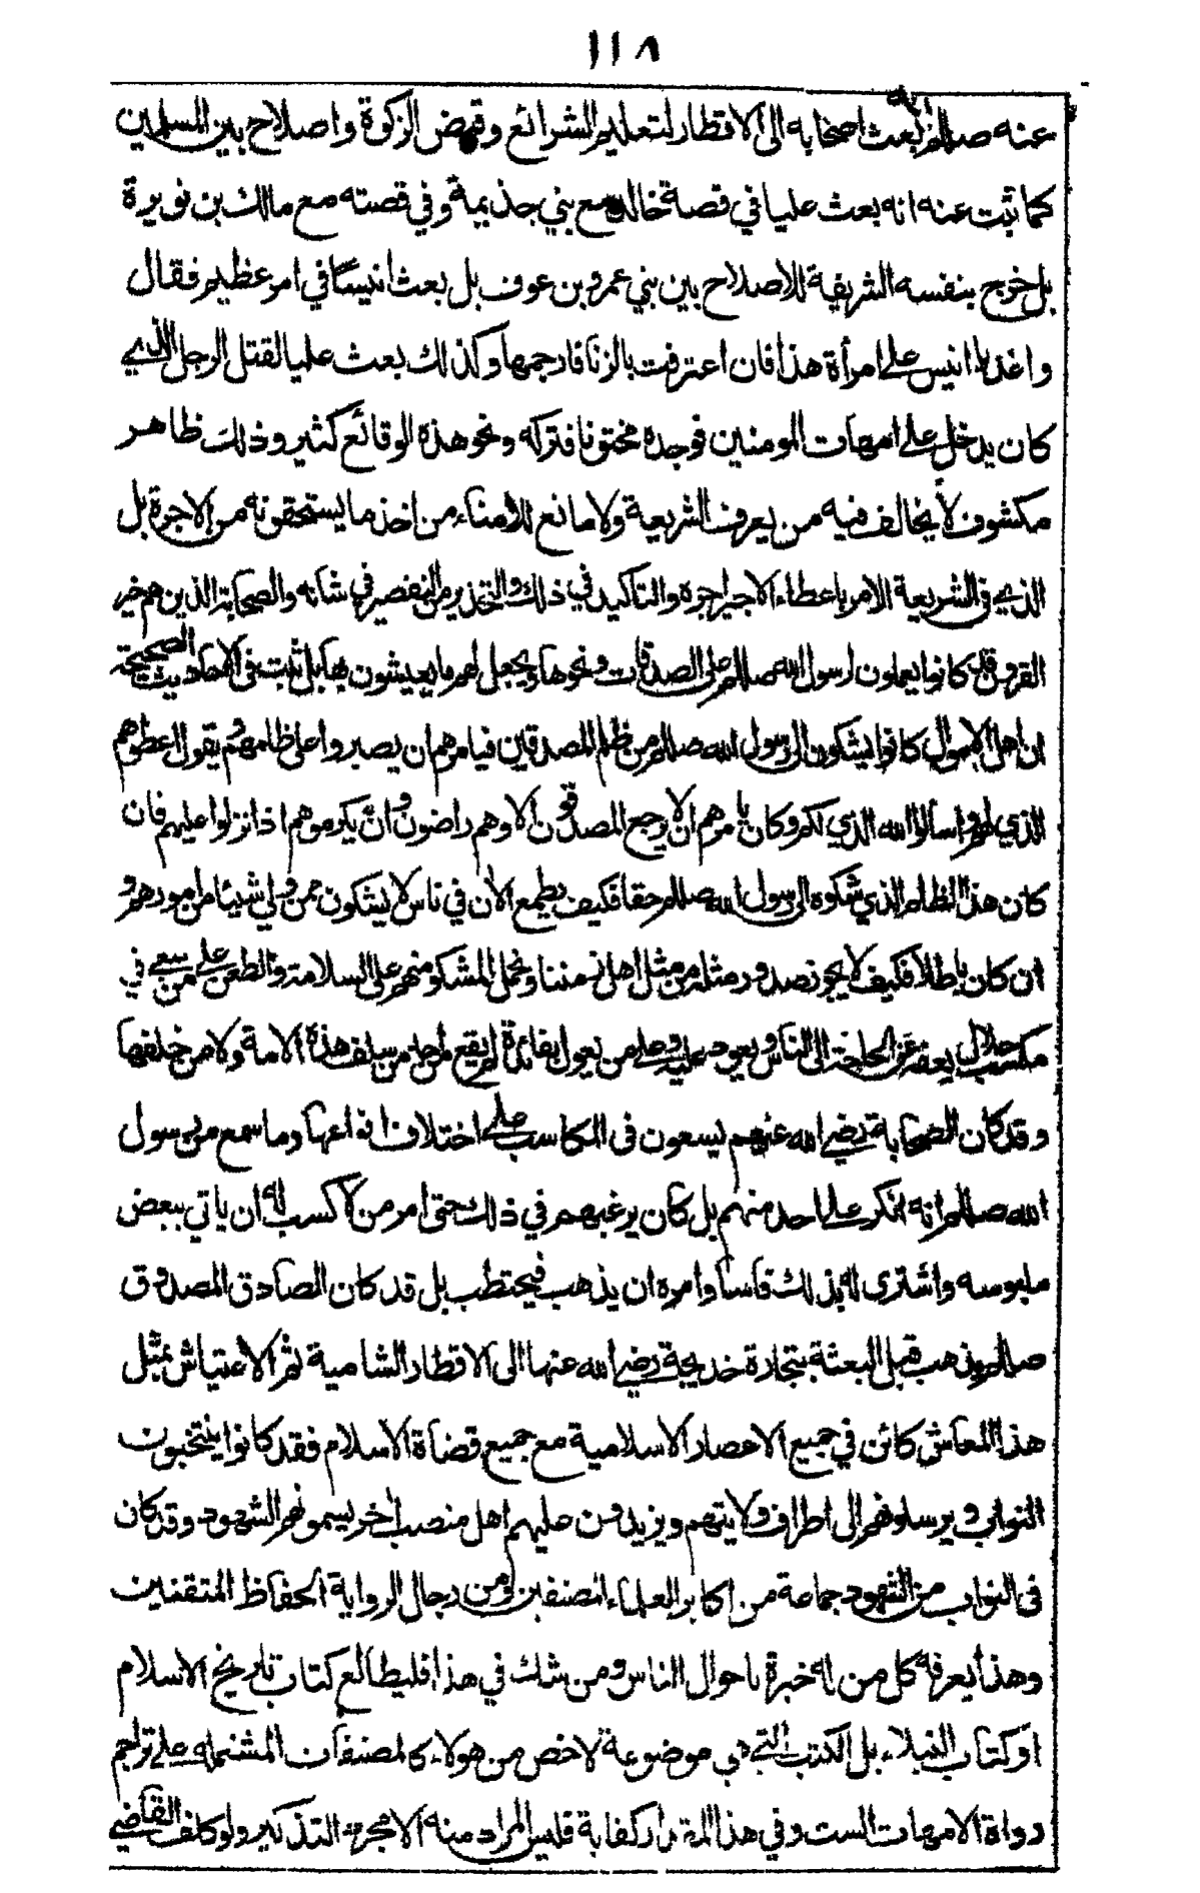 ١١٨
عنه صللم بعث اصحابه الى الاقطار لتعليم الشرائع وقبض الزكوة واصلاح بين المسلمين
كما ثبت عنه انه بعث عليا في قصة خالد مع بني جذيمة وفي قصته مع مالك بن نويرة
بل خرج بنفسه الشريفة للاصلاح بين بني عمرو بن عوف بل بعث انيسا في امر عظيم فقال
واغد يا انيس على امرأة هذا فان اعترفت بالزنا فارجمها وكذلك بعث عليا لقتل الرجل الذي
كان يدخل على امهات المومنين فوجده مختونا فتركه ونحو هذه الوقائع كثير وذلك ظاهر
مكشوف لا يخالف فيه من يعرف الشريعة ولا مانع للامناء من اخذ ما يستحقونه من الاجرة بل
الذي في الشريعة الامر باعطاء الاجير اجره والتاكيد في ذلك والتحذير من التقصير في شانه والصحابة الذين هم خير
القرون قد كانوا يعملون لرسول الله صللم على الصدقات ونحوها ويجعل لهم ما يعيشون به بل ثبت في الاحاديث الصحيحة
ان اهل الاموال كانوا يشكون الى رسول الله صللم من ظلم المصدقين فيامرهم ان يصبروا على ظلمهم ويقول اعطوهم
الذي لهم واسألوا الله الذي لكم وكان يامرهم ان لا يرجع المصدقون الا وهم راضون وان يكرموهم اذا نزلوا عليهم فان
كان هذا الظلم الذي شكوه الى رسول الله صللم حقا فكيف يطمع الآن في ناس لا يشكون ممن ولي شيئا من امورهم و
ان كان باطلا فكيف لا يجوز صدور مثله من مثل اهل زمننا ونحمل المشكو منهم على السلامة والطعن على من سعى في
مكسب حلال يعفه عن الحاجة الى الناس ويعود عليه وعلى من يعول بفائدة لم يقع لاحد من سلف هذه الامة ولا من خلفها
وقد كان الصحابة رضي الله عنهم يسعون في المكاسب على اختلاف انواعها وما سمع من رسول
الله صللم انه انكر على احد منهم بل كان يرغبهم في ذلك حتى امر من لا كسب له ان ياتي ببعض
ملبوسه واشترى له بذلك فاسا وامره ان يذهب فيحتطب بل قد كان الصادق المصدوق
صللم يذهب قبل البعثة بتجارة خديجة رضي الله عنها الى الاقطار الشامية ثم الاعتياش بمثل
هذا المعاش كائن في جميع الاعصار الاسلامية مع جميع قضاة الاسلام فقد كانوا ينتخبون
النواب ويرسلونهم الى اطراف ولايتهم ويزيدون عليهم اهل منصب آخر يسمونهم الشهود وقد كان
في النواب من الشهود جماعة من اكابر العلماء المصنفين ومن رجال الرواية الحفاظ المتقنين
وهذا يعرفه كل من له خبرة باحوال الناس ومن شك في هذا فليطالع كتاب تاريخ الاسلام
او كتاب النبلاء بل الكتب التي هي موضوعة لاخص من هولاء كالمصنفات المشتملة على تراجم
رواة الامهات الست وفي هذا المقدار كفاية فليس المراد منه الا مجرد التذكير ولو كلف القاضي